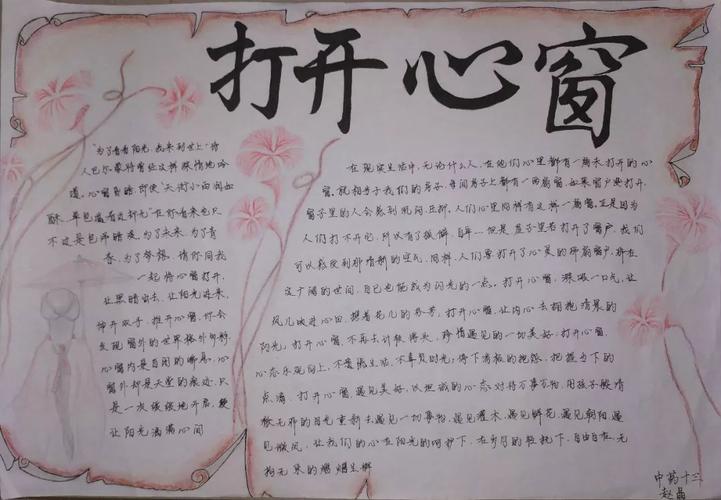 打开心窗
"为了看看阳光,我来到世上"诗
人巴尔蒙特曾经这样深情地吟
道。心窗昏暗,即使"天街小雨润如
酥,草色遥看近却无"在你看来也只
不过是包浮暗灰。为了未来,为了青
春,为了梦想,请你同我
一起将心窗打开,
让黑暗出去,让阳光进来,
伸开双手,推开心窗,你会
发现窗外的世界格外鲜妍。
心窗内是自闭的
窗外却是天堂的痕迹,只
是一次缓缓地开启,便
让阳光洒满心间
在现实生活中,无论什么人,在他们心里都有一扇未打开的心
窗。就相当于我们的房子,每间房子上都有一两扇窗,如果窗户没打开,
窗子里的人会感到沉闷、压抑。人们心里同样有这样一扇窗,正是因为
人们打不开它,所以有了孤僻、自卑…但是屋子里若打开了窗户,我们
可以感受到那清新的空气,同样,人们要打开了心灵的那扇窗户,那在
这广阔的世间,自己也能成为闪光的一点。打开心窗,深吸一口气,让
风儿吹进心田,携着花儿的芬芳,打开心窗,让内心去拥抱清晨的
阳光,打开心窗,不再去计较得失,珍惜遇见的一切美好;打开心窗,
心态乐观向上,不虚度生活,不辜负时光;停下消极的抱怨,把握当下的
点滴。打开心窗,遇见美好,以坦诚的心态对待万事万物,用孩子般清
澈无邪的目光重新去遇见一切事物,遇见灌木,遇见鲜花,遇见朝阳,遇
见微风,让我们的心在阳光的呵护下,在岁月的轻抚下,自由自在,无
拘无束的
中药十三
赵晶